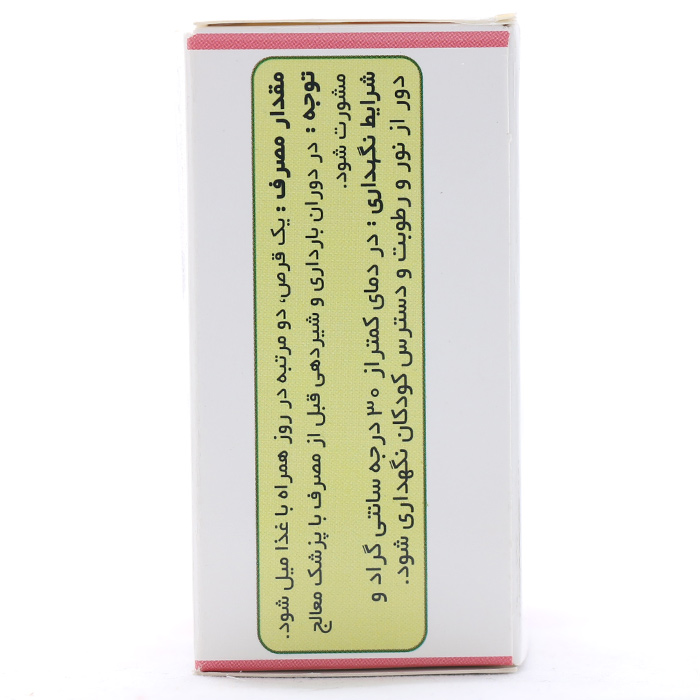 مقدار مصرف : یک قرص، دو مرتبه در روز همراه با غذا میل شود.
توجه : در دوران بارداری و شیردهی قبل از مصرف با پزشک معالج
مشورت شود.
شرایط نگهداری : در دمای کمتر از ۳۰ درجه سانتی گراد و
دور از نور و رطوبت و دسترس کودکان نگهداری شود.